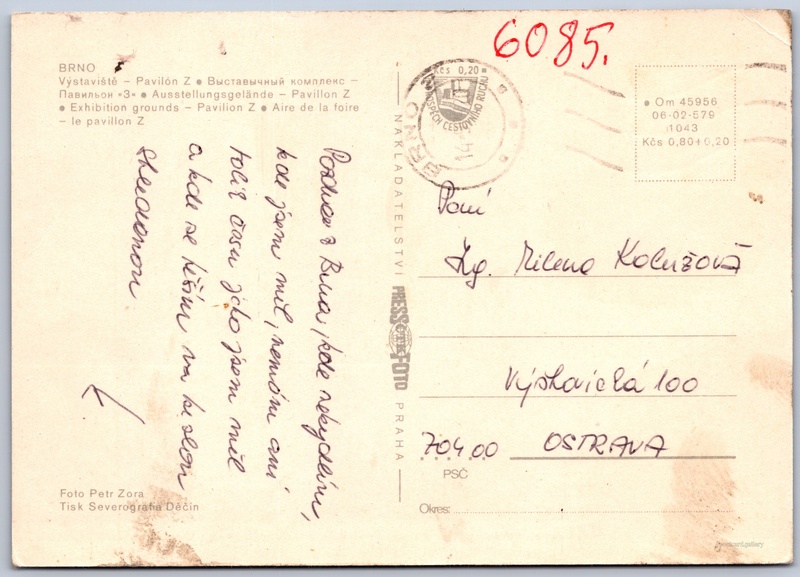 6085.
BRNO
Výstaviště – Pavilón Z • Выставычный комплекс –
Павильон «З» • Ausstellungsgelände – Pavillon Z
• Exhibition grounds – Pavilion Z • Aire de la foire
– le pavillon Z
Kčs 0,20
CESTOVNÍHO RUCHU
BRNO
• Om 45956
06-02-579
1043
Kčs 0,80+0,20
Pozdrav z Brna, kde nebydlím,
kde jsem měl, nemám ani
tolik času jako jsem měl
a kde se těším na
Paní
Ing. Milena
100
704 00 OSTRAVA
PSČ
Okres:
NAKLADATELSTVÍ PRESSFOTO PRAHA
ČTK
Foto Petr Zora
Tisk Severografia Děčín
postcard.gallery